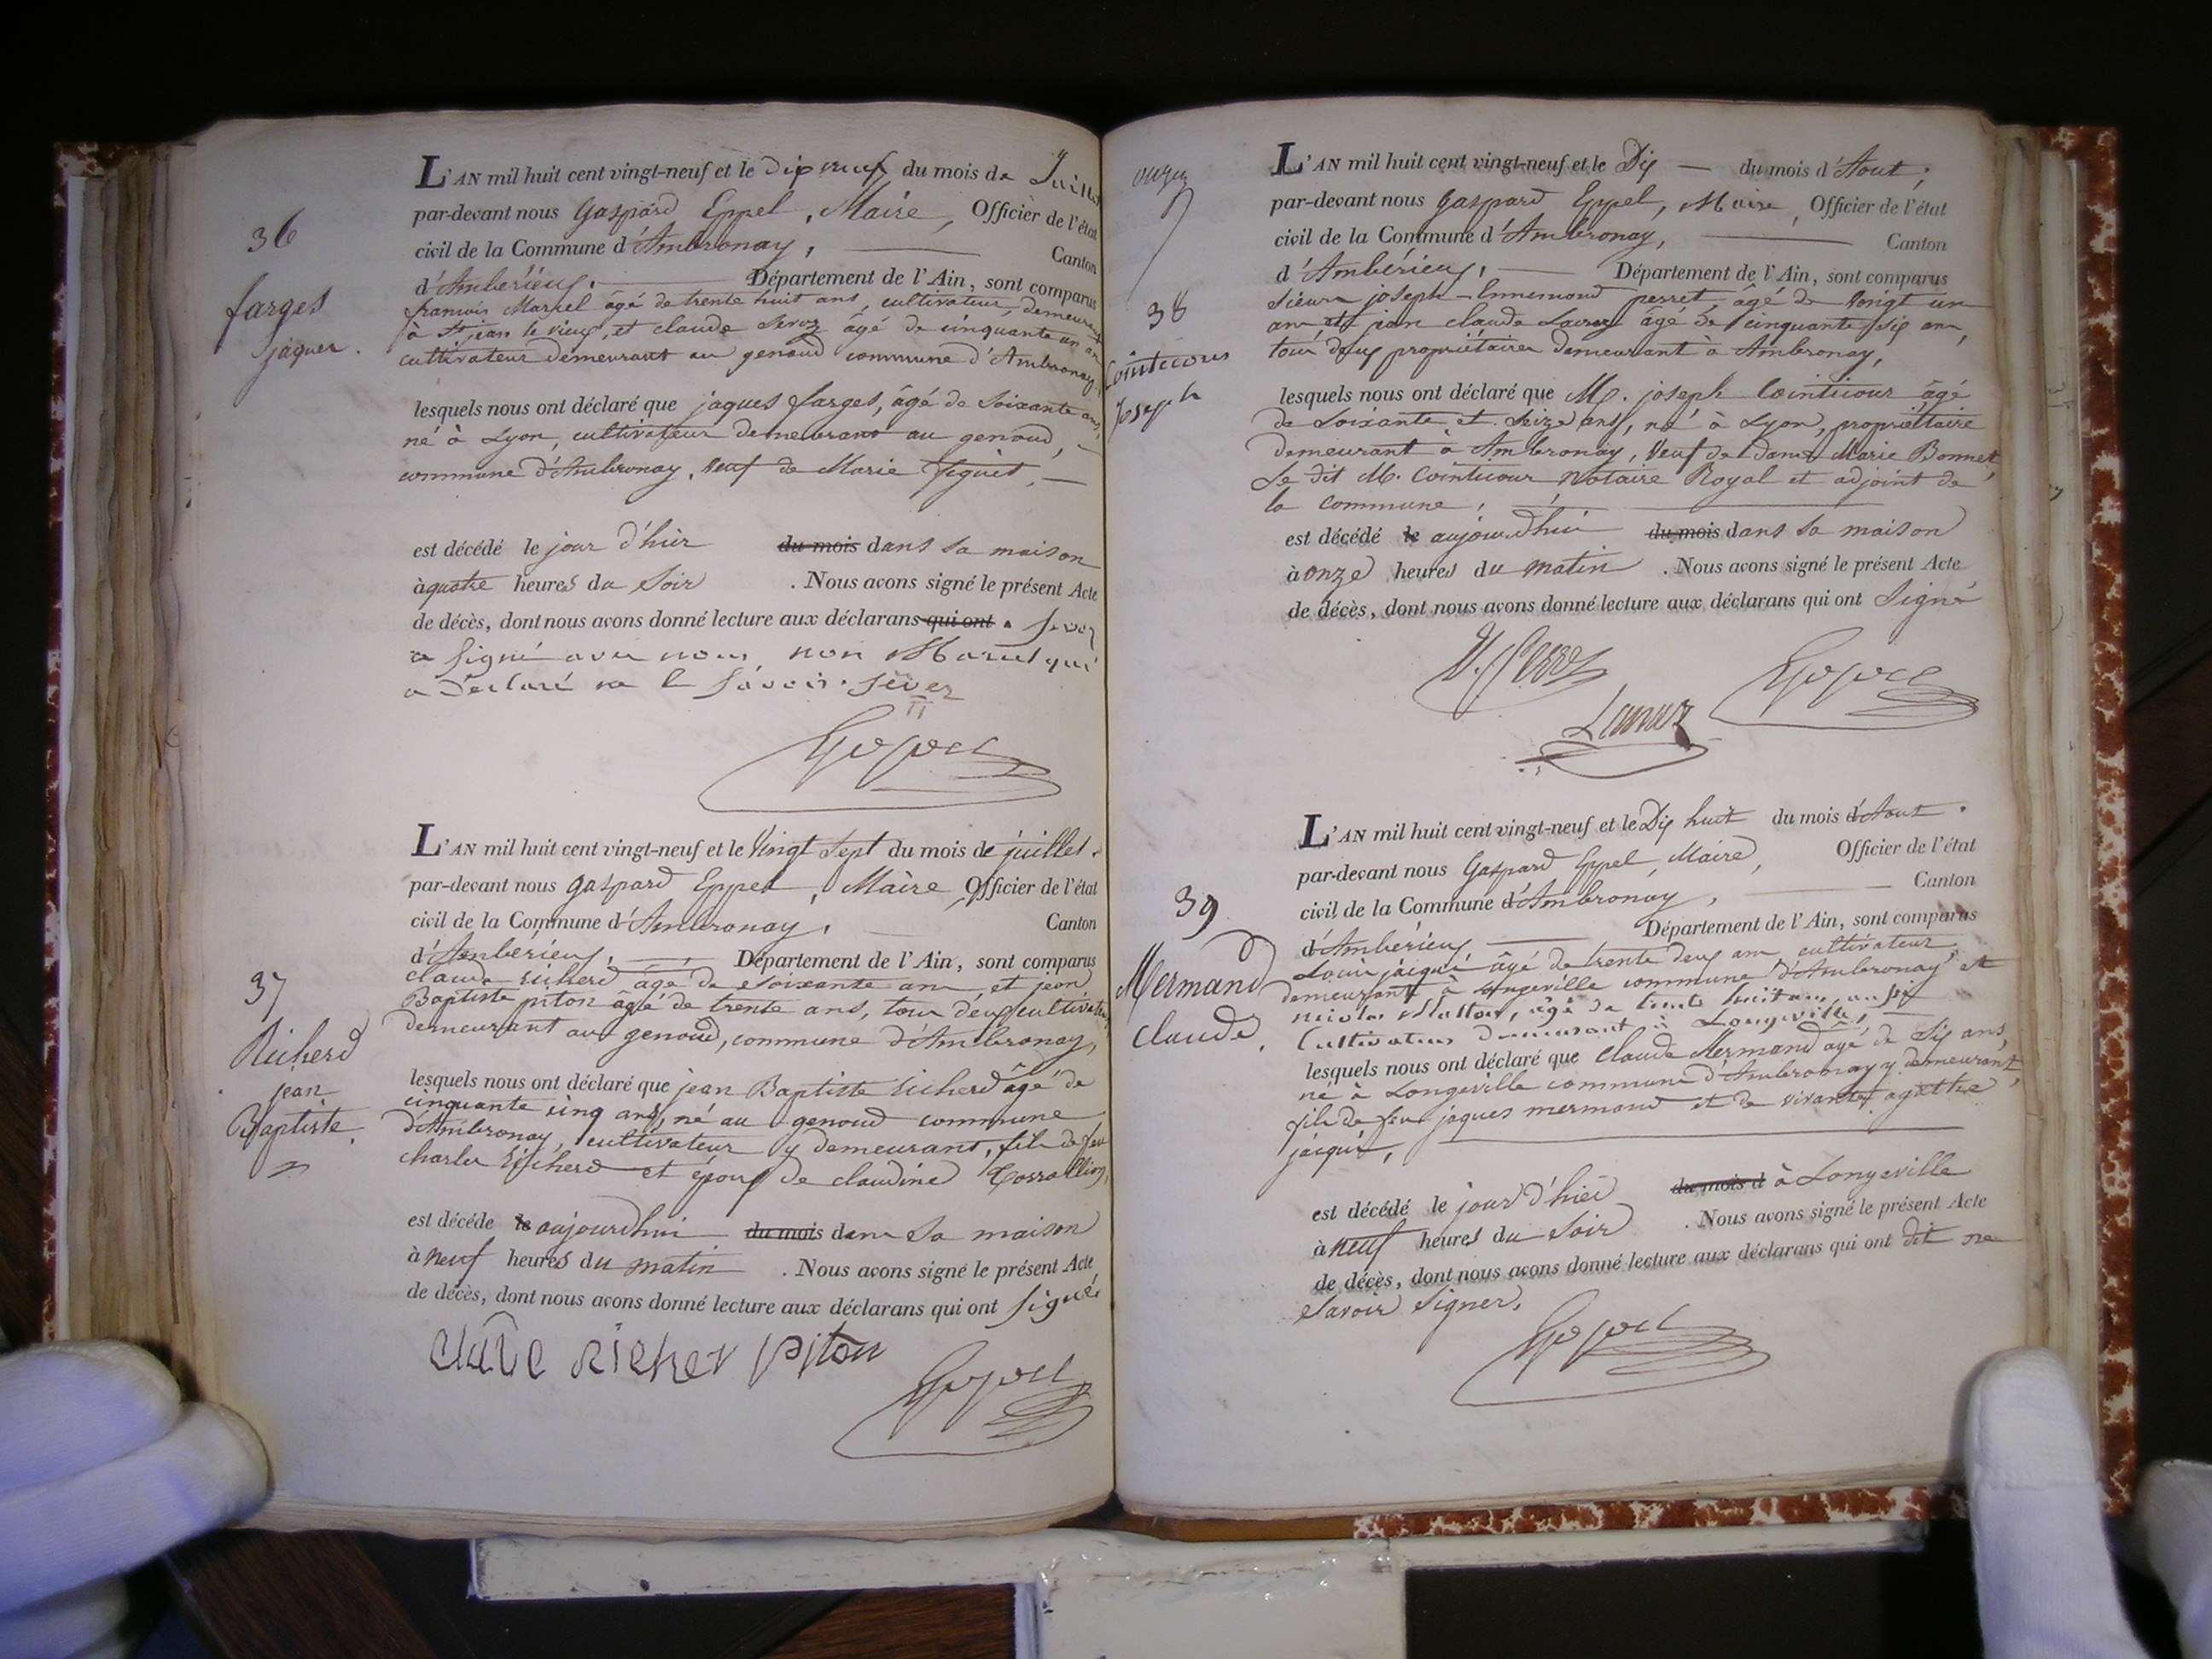 36
farges
jaques.
L'AN mil huit cent vingt-neuf et le dix neuf du mois de Juillet
par-devant nous Gaspard Eppel, Maire, Officier de l'état
civil de la Commune d'Ambronay, Canton
d'Ambérieux. Département de l'Ain, sont comparus
françois Marcel âgé de trente huit ans, cultivateur, demeurant
à St jean le vieux, et claude Servoz âgé de cinquante un ans
cultivateur demeurant au genoud commune d'Ambronay,
lesquels nous ont déclaré que jaques farges, âgé de soixante ans,
né à Lyon, cultivateur demeurant au genoud,
commune d'Ambronay, veuf de Marie
est décédé le jour d'hier du mois dans sa maison
à quatre heures du soir. Nous avons signé le présent Acte
de décès, dont nous avons donné lecture aux déclarans qui ont.
a signé avec nous, non Marcel qui
a déclaré ne le savoir.
37
Richerd
jean
Baptiste.
L'AN mil huit cent vingt-neuf et le Vingt Sept du mois de juillet.
par-devant nous Gaspard Eppel, Maire, Officier de l'état
civil de la Commune d'Ambronay, Canton
d'Ambérieux, Département de l'Ain, sont comparus
claude richerd âgé de soixante ans, et jean
Baptiste piton âgé de trente ans, tous deux cultivateurs
demeurant au genoud, commune d'Ambronay,
lesquels nous ont déclaré que jean Baptiste richerd âgé de
cinquante cinq ans, né au genoud commune
d'Ambronay, cultivateur y demeurant, fils de feu
charles richerd et époux de claudine
est décédé le aujourdhui du mois dans sa maison
à neuf heures du matin. Nous avons signé le présent Acte
de décès, dont nous avons donné lecture aux déclarans qui ont signé
richer piton
38
Cointicour
Joseph
L'AN mil huit cent vingt-neuf et le Dix du mois d'Aout,
par-devant nous Gaspard Eppel, Maire, Officier de l'état
civil de la Commune d'Ambronay, Canton
d'Ambérieux, Département de l'Ain, sont comparus
sieurs joseph-Ennemond perret, âgé de vingt un
ans et jean claude âgé de cinquante six ans,
tous deux propriétaires demeurant à Ambronay,
lesquels nous ont déclaré que M. joseph Cointicour âgé
de soixante et seize ans, né à Lyon, propriétaire
demeurant à Ambronay, veuf de dame Marie Bonnet,
Le dit M. Cointicour Notaire Royal et adjoint de
la commune,
est décédé le aujourdhui du mois dans sa maison
à onze heures du matin. Nous avons signé le présent Acte
de décès, dont nous avons donné lecture aux déclarans qui ont signé
39
Mermand
claude.
L'AN mil huit cent vingt-neuf et le Dix huit du mois d'Aout.
par-devant nous Gaspard Eppel, Maire, Officier de l'état
civil de la Commune d'Ambronay, Canton
d'Ambérieux Département de l'Ain, sont comparus
Louis jacquié âgé de trente deux ans cultivateur
demeurant à Longeville commune d'Ambronay et
nicolas âgé de trente huit ans, aussi
Cultivateur demeurant à Longeville,
lesquels nous ont déclaré que Claude Mermand âgé de six ans,
né à Longeville commune d'Ambronay y demeurant,
fils de feu jaques mermand et de vivante agathe
jacquié,
est décédé le jour d'hier du mois d à Longeville
à neuf heures du soir. Nous avons signé le présent Acte
de décès, dont nous avons donné lecture aux déclarans qui ont dit ne
savoir signer.